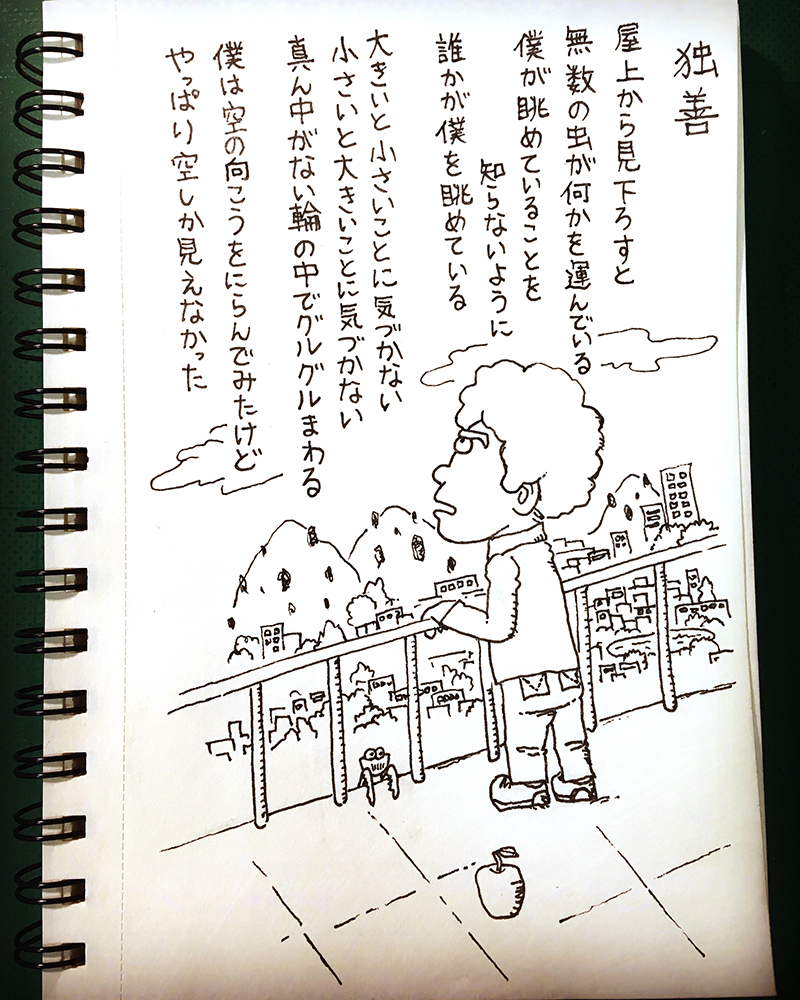 独善
屋上から見下ろすと
無数の虫が何かを運んでいる
僕が眺めていることを
知らないように
誰かが僕を眺めている
大きいと小さいことに気づかない
小さいと大きいことに気づかない
真ん中がない輪の中でグルグルまわる
僕は空の向こうをにらんでみたけど
やっぱり空しか見えなかった